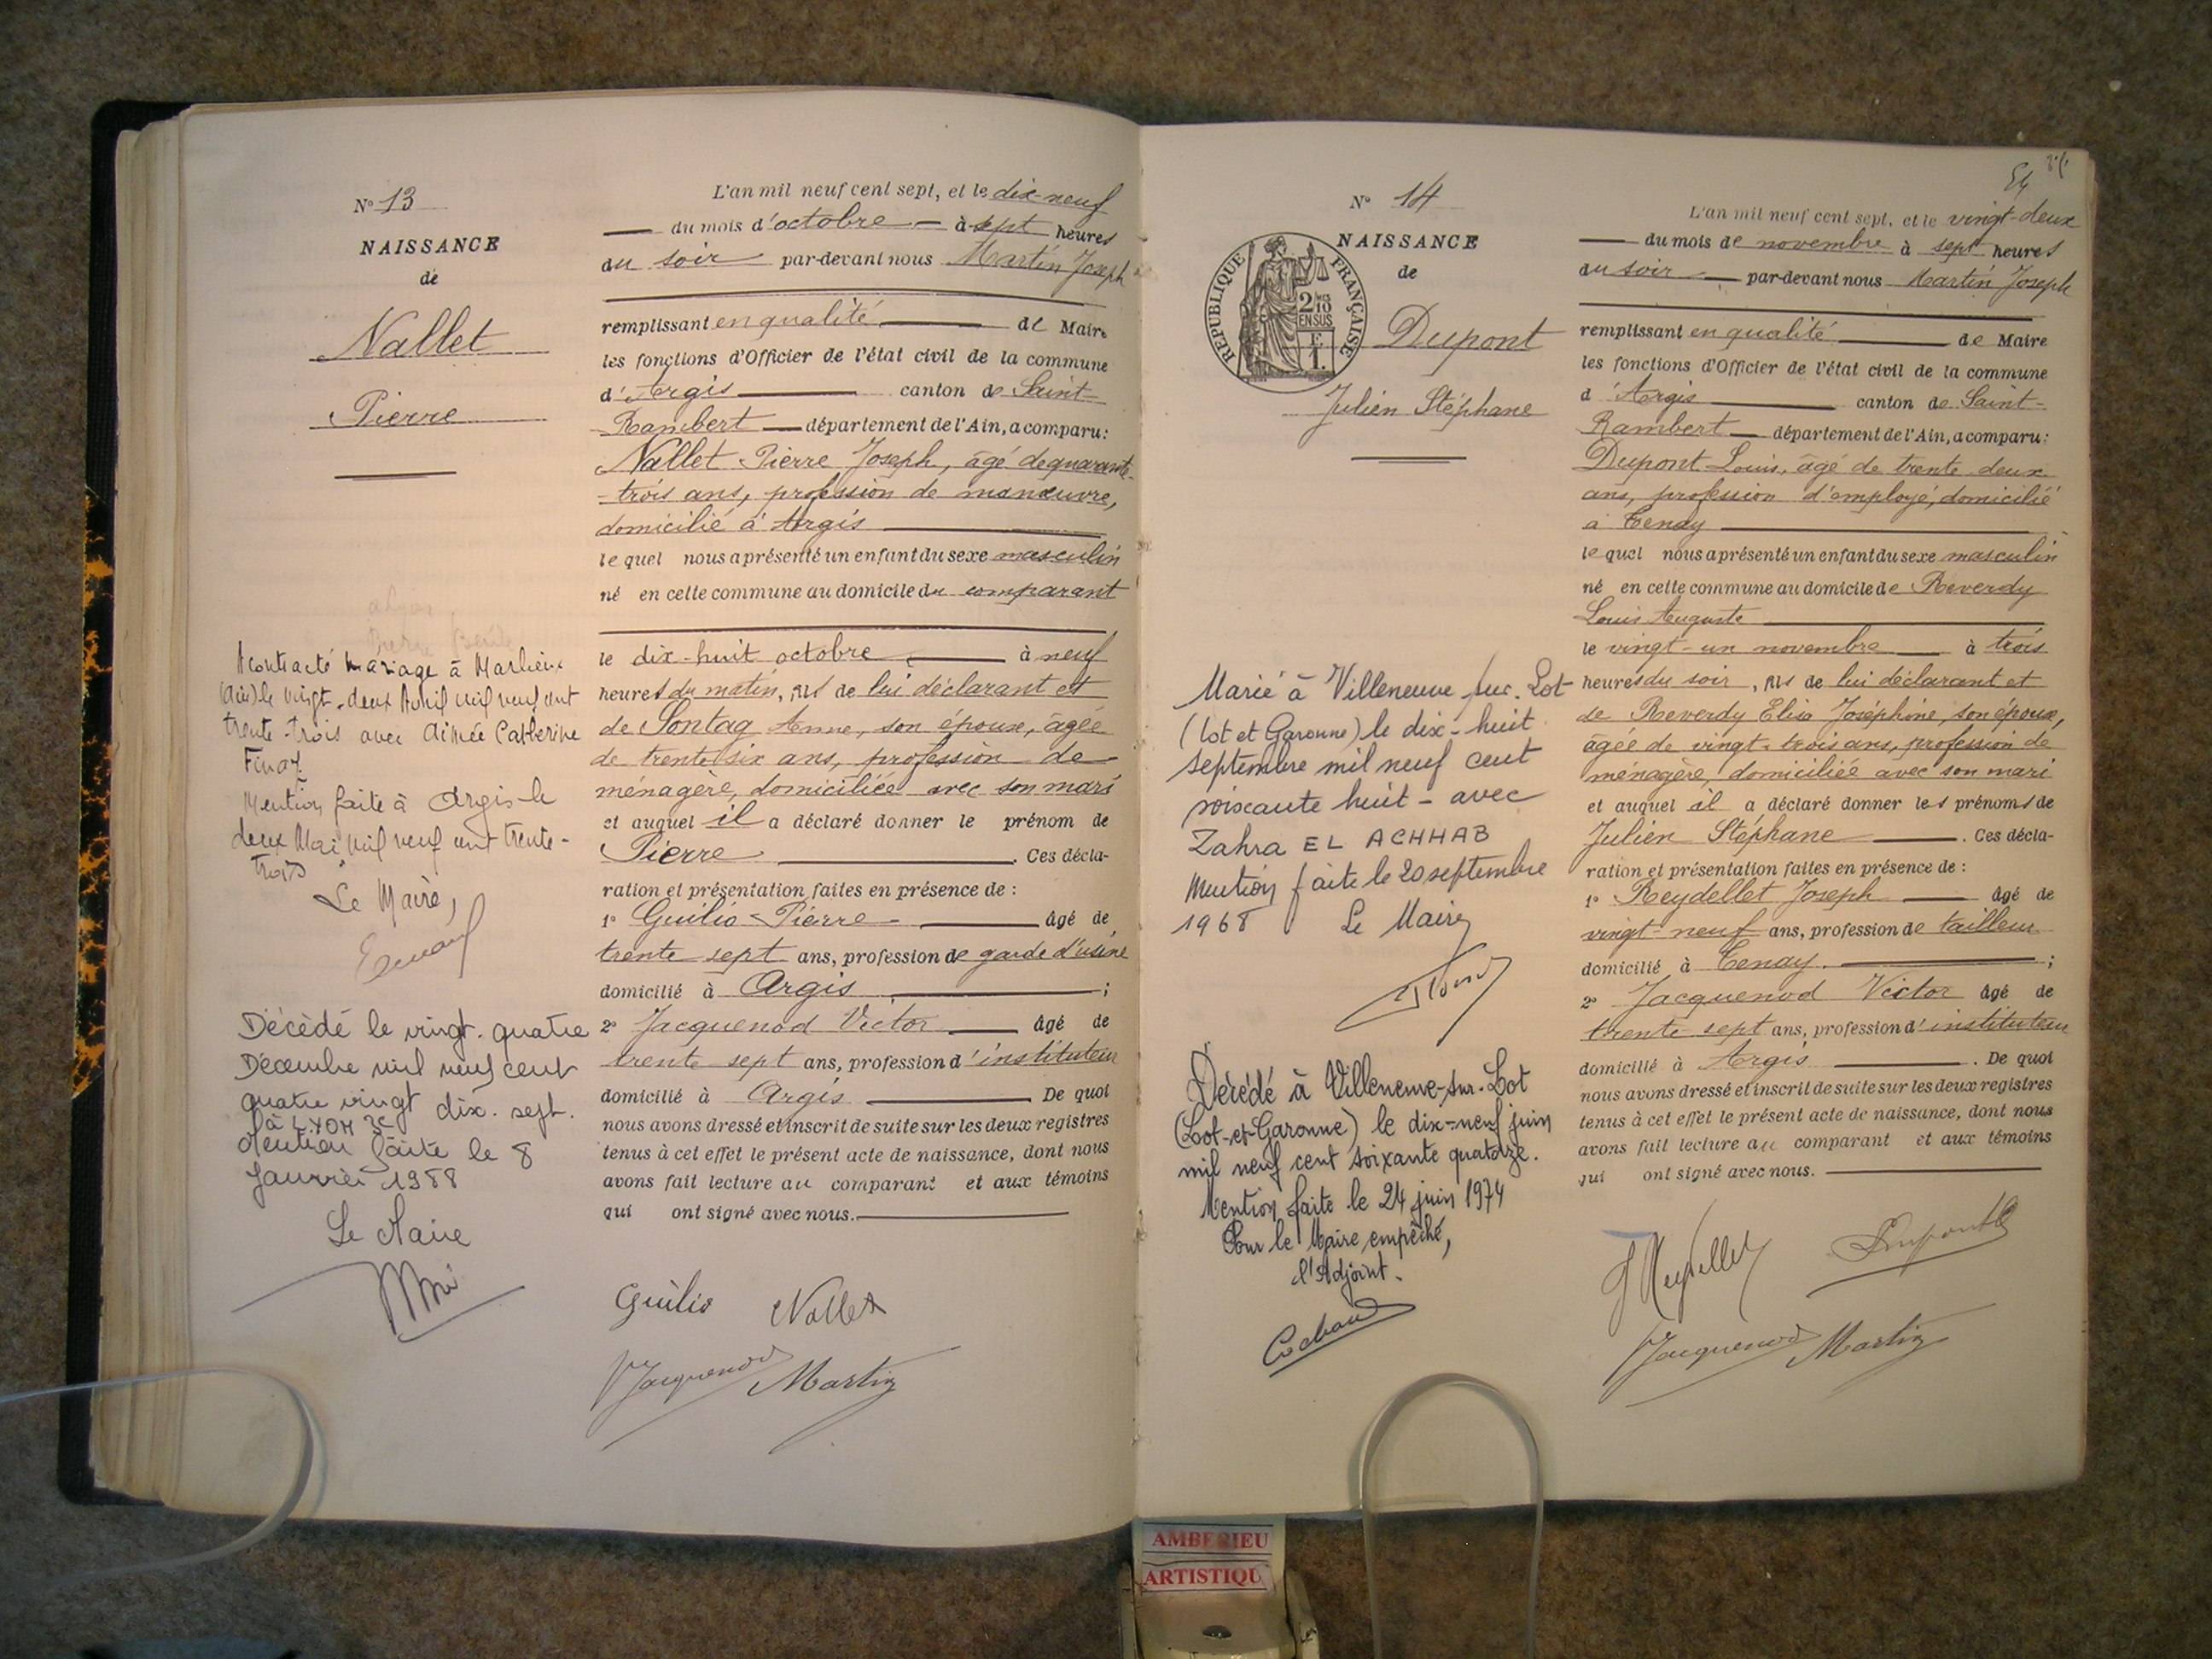 N° 13
NAISSANCE
de
Nallet
Pierre
A contracté mariage à Marlieux
(Ain) le vingt-deux Avril mil neuf cent
trente-trois avec Aimée Catherine
Mention faite à Argis le
deux Mai mil neuf cent trente-
trois
Le Maire,
Décédé le vingt-quatre
Décembre mil neuf cent
quatre vingt dix-sept.
à LYON 3e
Mention faite le 8
Janvier 1988
Le Maire
L'an mil neuf cent sept, et le dix-neuf
du mois d'octobre à sept heures
du soir par-devant nous Martin Joseph
remplissant en qualité de Maire
les fonctions d'Officier de l'état civil de la commune
d'Argis canton de Saint-
Rambert département de l'Ain, a comparu:
Nallet Pierre Joseph, âgé de quarante-
-trois ans, profession de manœuvre,
domicilié à Argis
lequel nous a présenté un enfant du sexe masculin
né en cette commune au domicile du comparant
le dix-huit octobre à neuf
heures du matin, fils de lui déclarant et
de Sontag Anne, son épouse, âgée
de trente six ans, profession de
ménagère, domiciliée avec son mari
et auquel il a déclaré donner le prénom de
Pierre. Ces décla-
ration et présentation faites en présence de :
1° Guilio Pierre âgé de
trente sept ans, profession de garde d'usine
domicilié à Argis ;
2° Jacquenod Victor âgé de
trente sept ans, profession d'instituteur
domicilié à Argis De quoi
nous avons dressé et inscrit de suite sur les deux registres
tenus à cet effet le présent acte de naissance, dont nous
avons fait lecture au comparant et aux témoins
qui ont signé avec nous.
Guilio Nallet
Jacquenod Martin
N° 14
NAISSANCE
de
RÉPUBLIQUE FRANÇAISE
2/10
EN SUS
F
1.
Dupont
Julien Stéphane
Marié à Villeneuve sur Lot
(Lot et Garonne) le dix-huit
septembre mil neuf cent
soixante huit - avec
Zahra EL ACHHAB
Mention faite le 20 septembre
1968 Le Maire
Décédé à Villeneuve-sur-Lot
(Lot-et-Garonne) le dix-neuf juin
mil neuf cent soixante quatorze.
Mention faite le 24 juin 1974
Pour le Maire empêché,
l'Adjoint.
54
L'an mil neuf cent sept, et le vingt-deux
du mois de novembre à sept heures
du soir par-devant nous Martin Joseph
remplissant en qualité de Maire
les fonctions d'Officier de l'état civil de la commune
d'Argis canton de Saint-
Rambert département de l'Ain, a comparu:
Dupont Louis, âgé de trente deux
ans, profession d'employé, domicilié
à Tenay
lequel nous a présenté un enfant du sexe masculin
né en cette commune au domicile de Reverdy
Louis Auguste
le vingt-un novembre à trois
heures du soir, fils de lui déclarant et
de Reverdy Elisa Joséphine, son épouse,
âgée de vingt-trois ans, profession de
ménagère, domiciliée avec son mari
et auquel il a déclaré donner les prénoms de
Julien Stéphane. Ces décla-
ration et présentation faites en présence de :
1° Reydellet Joseph âgé de
vingt-neuf ans, profession de tailleur
domicilié à Tenay ;
2° Jacquenod Victor âgé de
trente sept ans, profession d'instituteur
domicilié à Argis. De quoi
nous avons dressé et inscrit de suite sur les deux registres
tenus à cet effet le présent acte de naissance, dont nous
avons fait lecture au comparant et aux témoins
qui ont signé avec nous.
J Reydellet Dupont
Jacquenod Martin
AMBERIEU
ARTISTIQU